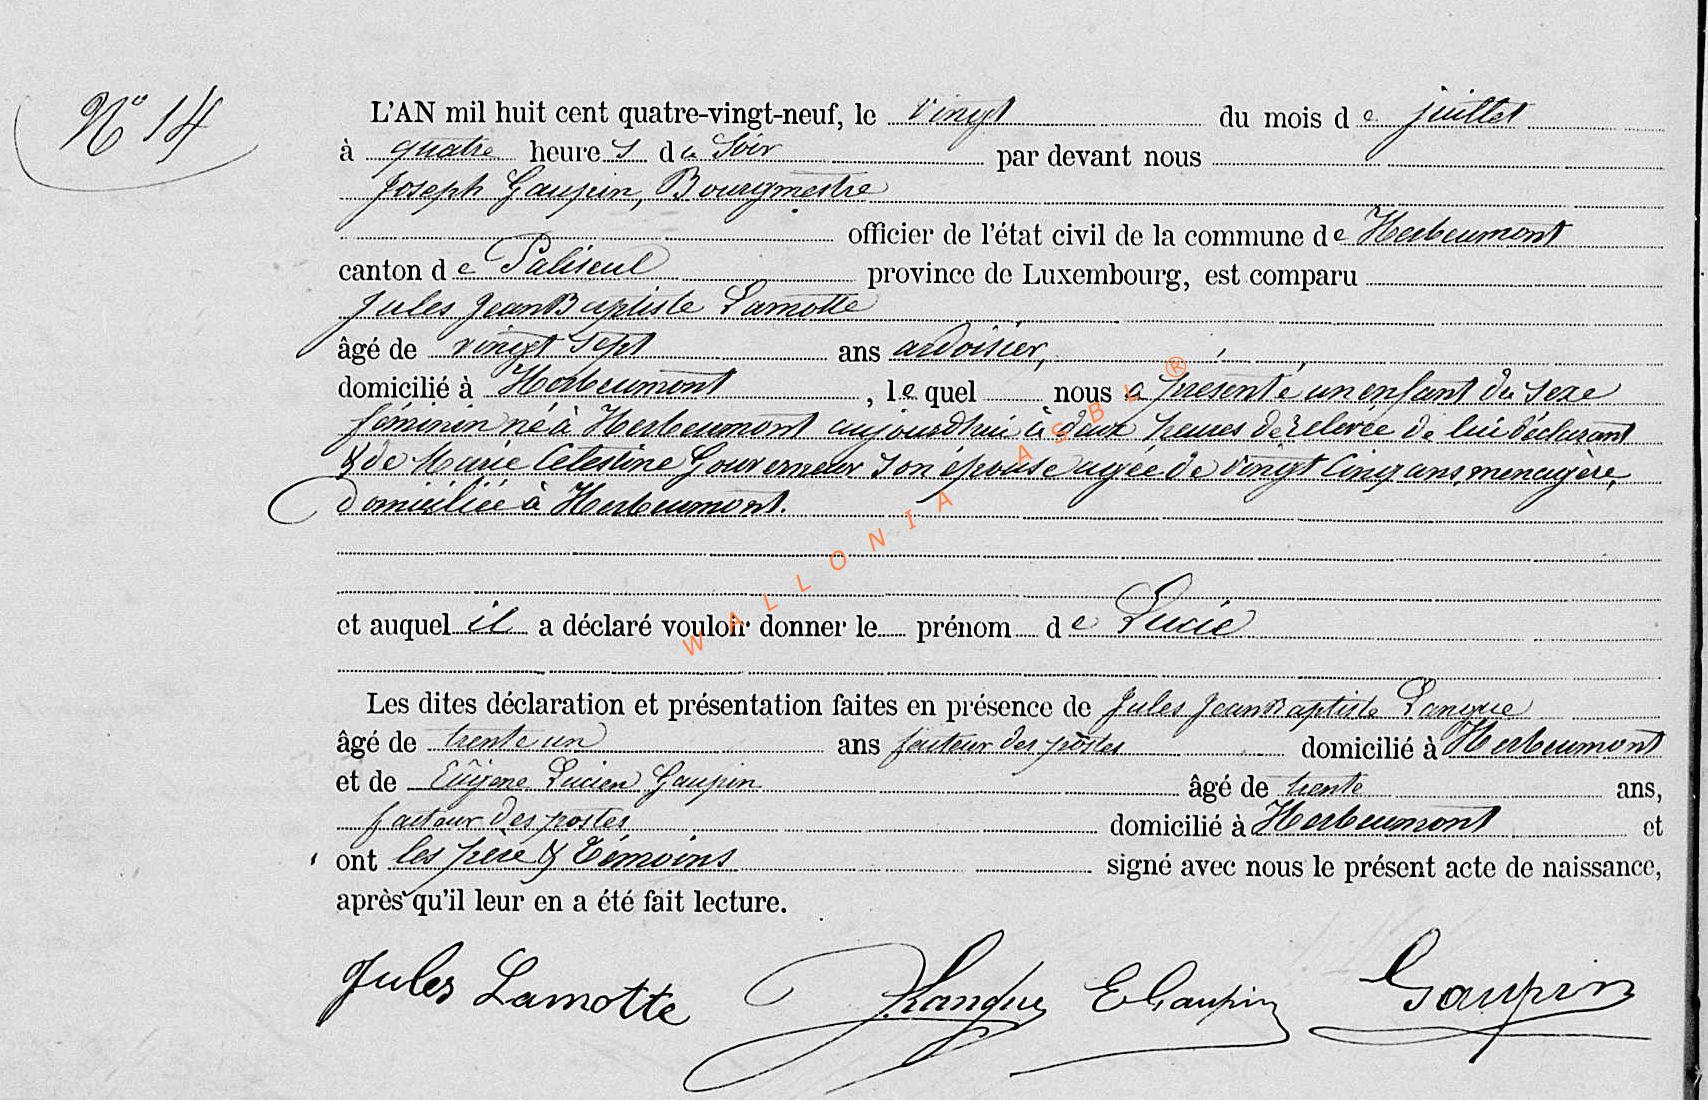 N° 14
L'AN mil huit cent quatre-vingt-neuf, le vingt du mois de juillet
à quatre heures du Soir par devant nous
Joseph Gaupin, Bourgmestre
officier de l'état civil de la commune de Herbeumont
canton de Paliseul province de Luxembourg, est comparu
Jules Jean Baptiste Lamotte
âgé de vingt sept ans ardoisier,
domicilié à Herbeumont, lequel nous a présenté un enfant du sexe
féminin né à Herbeumont aujourdhui à deux heures de relevée de lui déclarant
& de Marie Célestine Gouverneur son épouse agée de vingt cinq ans, menagère,
domiciliée à Herbeumont.
et auquel il a déclaré vouloir donner le prénom de Lucie
Les dites déclaration et présentation faites en présence de Jules Jean Baptiste Langue
âgé de trente un ans facteur des postes domicilié à Herbeumont
et de Eugène Lucien Gaupin âgé de trente ans,
facteur des postes domicilié à Herbeumont et
ont les père & témoins signé avec nous le présent acte de naissance,
après qu'il leur en a été fait lecture.
Jules Lamotte J. Langue E Gaupin Gaupin
WALLONIA ASBL ®